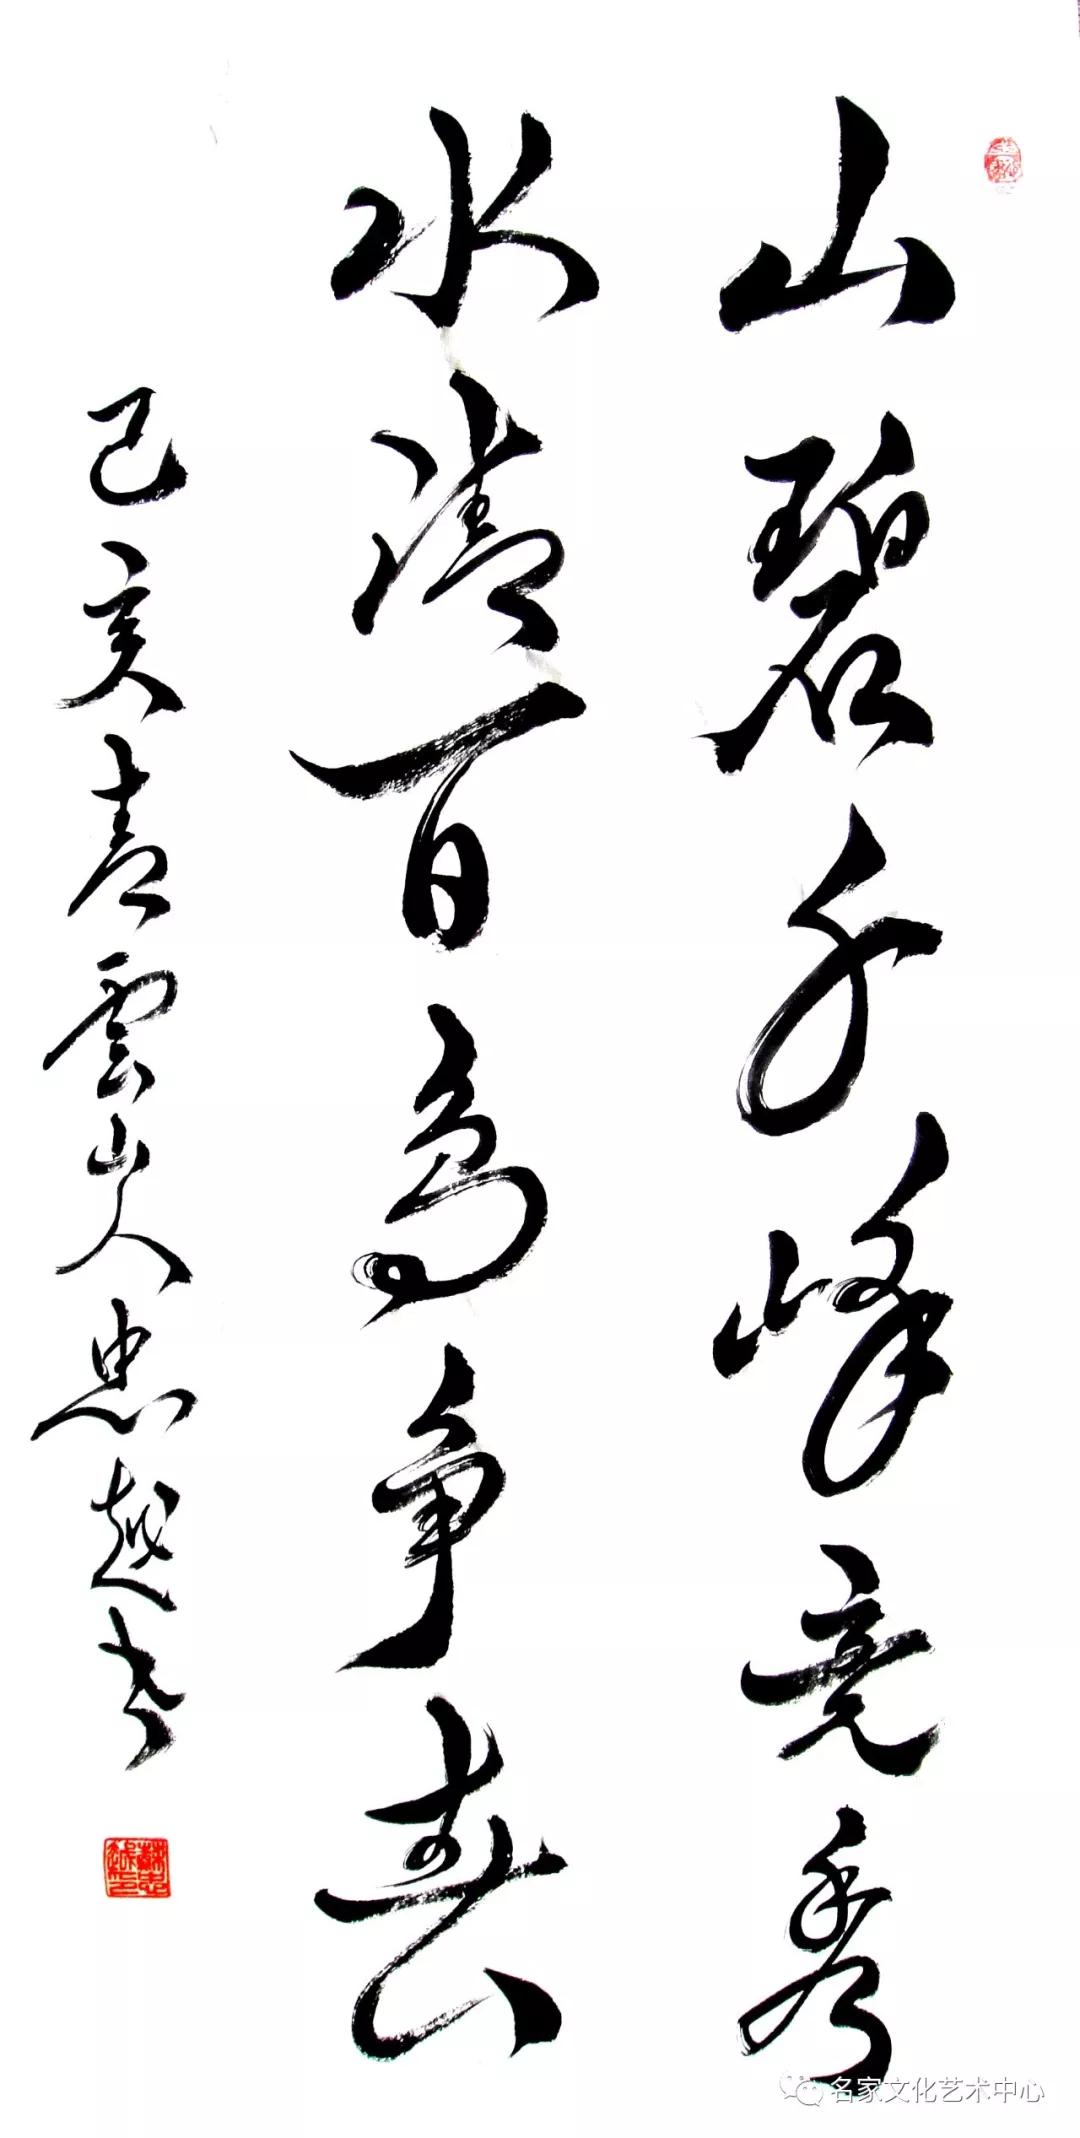 山碧千峰竞秀
水清百鸟争喜
己亥青雲山人忠越书
名家文化艺术中心